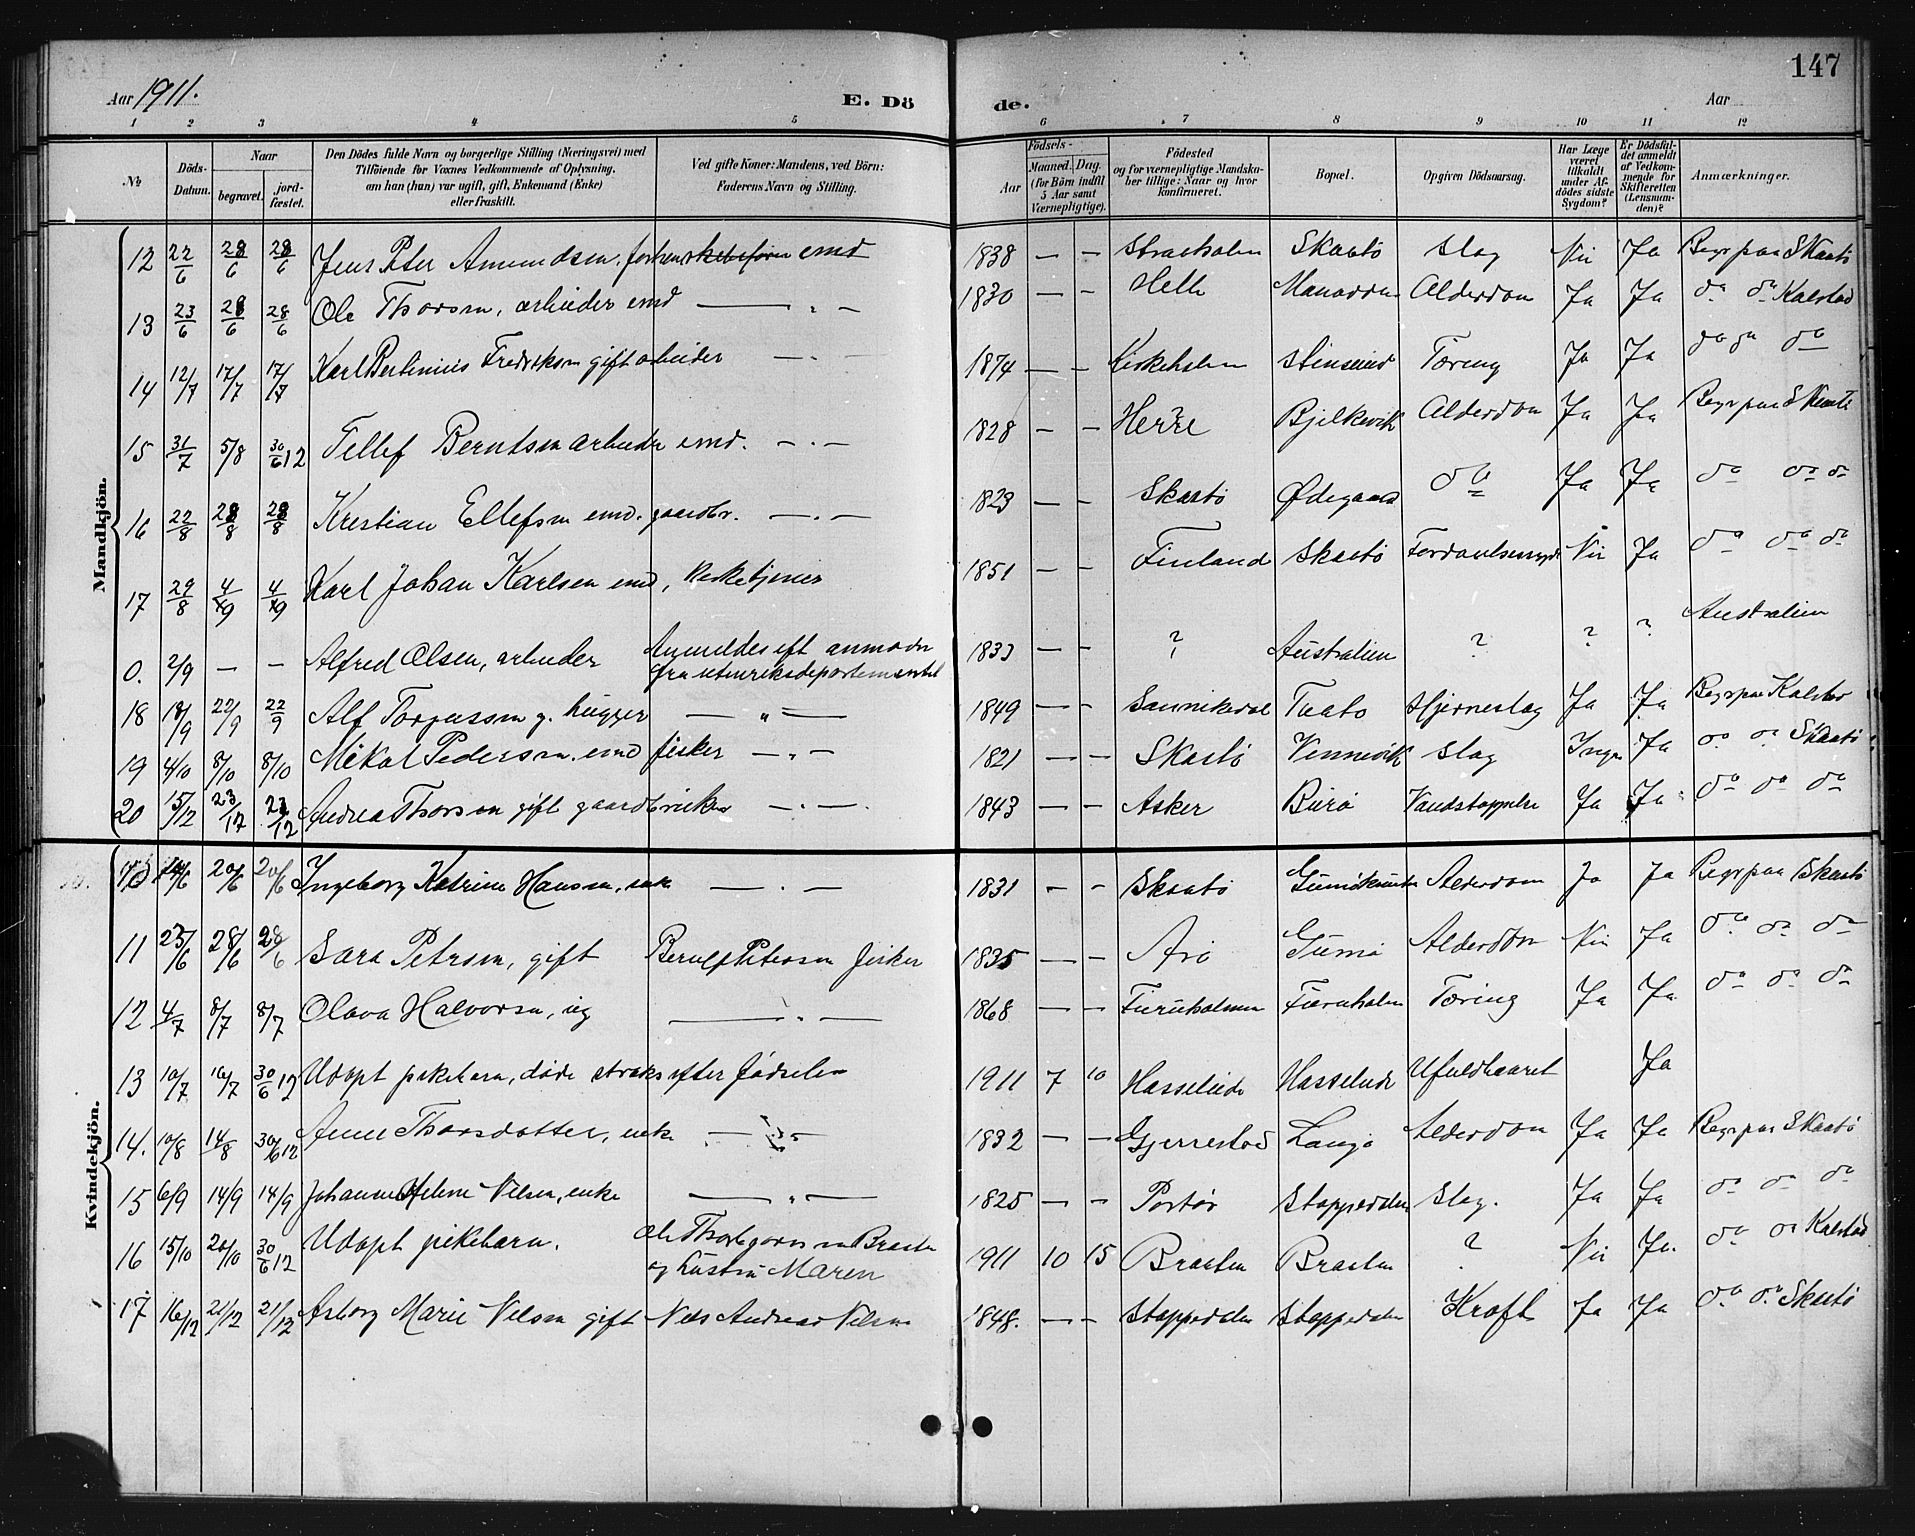 147
Aar 1911.
E. Dö
de.
Aar
1 2 3 4 5 6 7 8 9 10 11 12
No
Döds-Datum.
Naar
begravet.
jord-fæstet.
Den Dödes fulde Navn og borgerlige Stilling (Næringsvei) med
Tilföiende for Voxnes Vedkommende af Oplysning,
om han (hun) var ugift, gift, Enkemand (Enke)
eller fraskilt.
Ved gifte Koner: Mandens, ved Börn:
Faderens Navn og Stilling.
Födsels-
Aar
Maaned. Dag.
(for Börn indtil
5 Aar samt
Værnepligtige).
Födested
og for værnepligtige Mandska-
ber tillige: Naar og hvor
konfirmeret.
Bopæl.
Opgiven Dödsaarsag.
Har Læge
været
tilkaldt
under Af-
dödes sidste
Sygdom?
Er Dödsfal-
det anmeldt
af Vedkom-
mende for
Skifteretten
(Lensman-
den)?
Anmærkninger.
Mandkjön.
12 22/6 28/6 28/6 Jens Peter Amundsen, emd 1838 — — Skaatö Slag Nei Ja Begr paa Skaatö
13 23/6 28/6 28/6 Ole Thorsen, arbeider emd — " — 1830 — — Helle Alderdom Ja Ja do do Kalstad
14 12/7 17/7 17/7 Karl Bertinius Fredriksen gift arbeider — " — 1874 — — Kirkeholmen Tæring Ja Ja do do do
15 31/7 5/8 30/6 12 Tellef Berntsen arbeider emd. — " — 1828 — — Herre Bjelkevik Alderdom Ja Ja Begr paa Skaatö
16 22/8 28/8 28/8 Kristian Ellefsen emd. gaardbr. — " — 1823 — — Skaatö Ødegaard do Ja Ja do do do
17 29/8 4/9 4/9 Karl Johan Karlsen emd, kirketjener 1851 — — Finland Skaatö Nei Ja do do do
0. 2/9 — — Alfred Olsen, arbeider Anmeldes eft anmodn
fra utenriksdepartementet 1833 — — ? Australien ? ? ? Australien
18 18/9 22/9 22/9 Alf Torgussen g. hugger — " — 1849 — — Sannikedal Tuato Hjerneslag Ja Ja Begr paa Kalstad
19 4/10 8/10 8/10 Mikal Pedersen. emd fisker — " — 1821 — — Skaatö Vennevik Slag Ingen Ja do do Skaatö
20 15/12 23/12 23/12 Andrea Thorsen gift gaardbruker — " — 1843 — — Asker Burö Ja Ja do do do
Kvindekjön.
10. 14/6 20/6 20/6 Ingeborg Katrine Hansen, enke — " — 1831 — — Skaatö Alderdom Ja Ja Begr paa Skaatö
11 23/6 28/6 28/6 Sara Petersen, gift Petersen fisker 1835 — — Arö Gumö Alderdom Nei Ja do do do
12 4/7 8/7 8/7 Olava Halvorsen, ug — " — 1868 — — Furuholmen Furuholmen Tæring Ja Ja do do do
13 10/7 16/7 30/6 12 Udøpt pikebarn, døde straks efter fødselen 1911 7 10 Hasseldide Hasseldide Ufuldbaaret Ja
14. 10/8 14/8 30/6 12 Anne Thorsdatter, enke — " — 1832 — — Gjerrestad Langö Alderdom Ja Ja Begr paa Skaatö
15 6/9 14/9 14/9 Johanne Helene Nilsen, enke — " — 1825 — — Portör Stoppedalen Slag. Ja Ja do do do
16 15/10 20/10 30/6 12 Udøpt pikebarn. Ole Thorbjørnsen Braaten
og hustru Maren 1911 10 15 Braaten Braaten ? Nei Ja. do do Kalstad
17 16/12 21/12 21/12 Asborg Marie Nilsen gift Nils Andreas Nilsen 1848. — — Stoppedalen Stoppedalen Kræft Ja Ja do do Skaatö